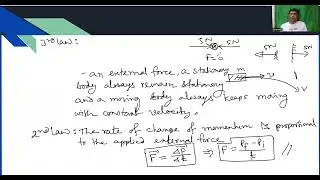 3rd law:
5N 5N
F=0
5N 5N
- an external force, a stationary
body always remain stationary
and a moving body always keeps moving
with constant velocity.
2nd law: The rate of change of momentum is proportional
to the applied external force
F = ΔP/Δt ⇒ F = Pf - Pi / t //